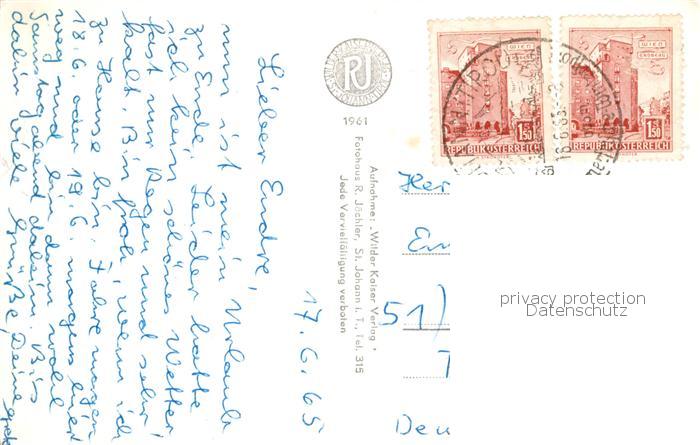 17.6.65
Lieber Endre,
nun ist mein Urlaub
zu Ende. Leider hatte
ich kein schönes Wetter,
fast nur Regen und sehr
kalt. Bin froh, wenn ich
zu Hause bin. Fahre morgen
18.6. oder 19.6. morgens hier
weg und bin dann wohl
Samstagabend daheim. Bis
dahin viele Grüße, Deine
RJ
1961
Aufnahme: „Wilder Kaiser Verlag"
Fotohaus R. Jöchler, St. Johann i. T., Tel. 315
Jede Vervielfältigung verboten
WIEN
ERDBERG
1.50
REPUBLIK ÖSTERREICH
WIEN
ERDBERG
1.50
REPUBLIK ÖSTERREICH
Her
51)
Deu
privacy protection
Datenschutz